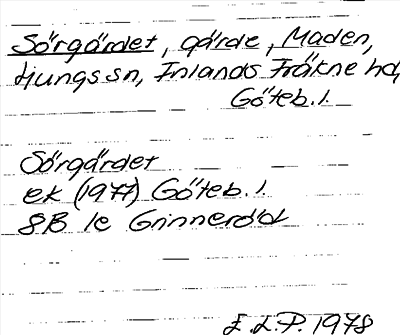 Sörgärdet, gärde, Maden,
Ljungs sn, Inlands Fräkne hd,
Göteb. l.
Sörgärdet
ek (1977) Göteb. l.
8B 1e Grinneröd
E. L. P. 1978